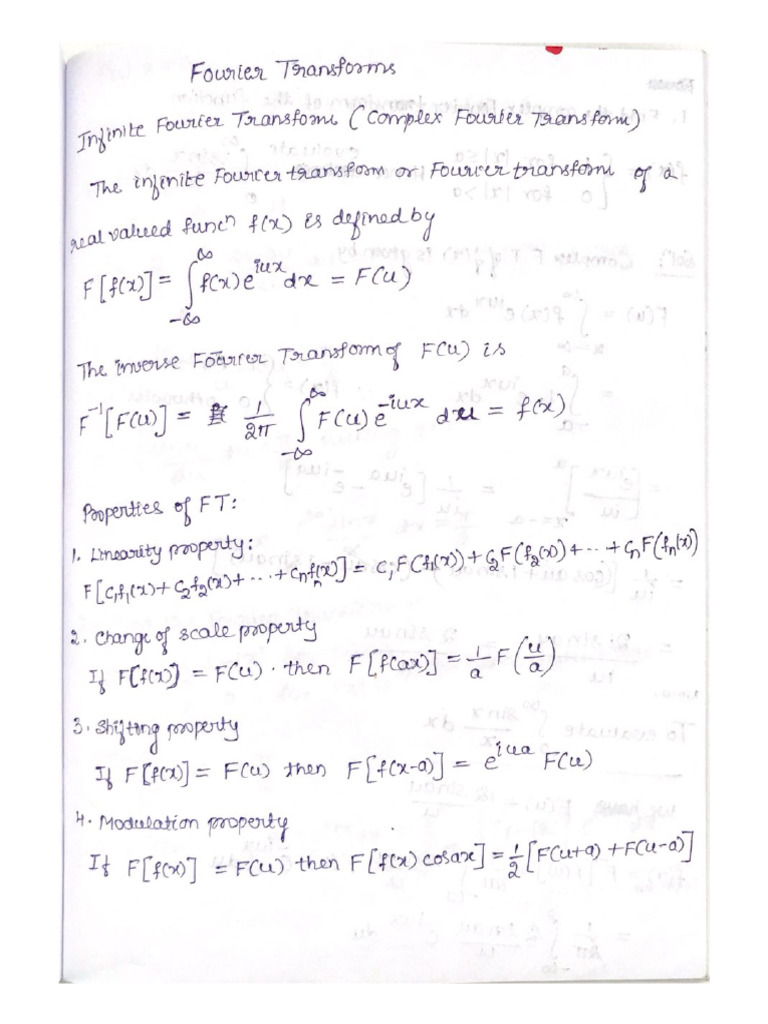 Fourier Transforms
Infinite Fourier Transform (Complex Fourier Transform)
The infinite Fourier transform or Fourier transform of a
real valued funcn f(x) is defined by
F[f(x)] = ∫_{-∞}^{∞} f(x) e^{iux} dx = F(u)
The inverse Fourier Transform of F(u) is
F^{-1}[F(u)] = 1/2π ∫_{-∞}^{∞} F(u) e^{-iux} du = f(x)
Properties of FT:
1. Linearity property:
F[c₁f₁(x)+c₂f₂(x)+...+cₙfₙ(x)] = c₁F(f₁(x))+c₂F(f₂(x))+...+cₙF(fₙ(x))
2. Change of scale property
If F[f(x)] = F(u). then F[f(ax)] = 1/a F(u/a)
3. Shifting property
If F[f(x)] = F(u) then F[f(x-a)] = e^{iua} F(u)
4. Modulation property
If F[f(x)] = F(u) then F[f(x) cosax] = 1/2 [F(u+a) + F(u-a)]